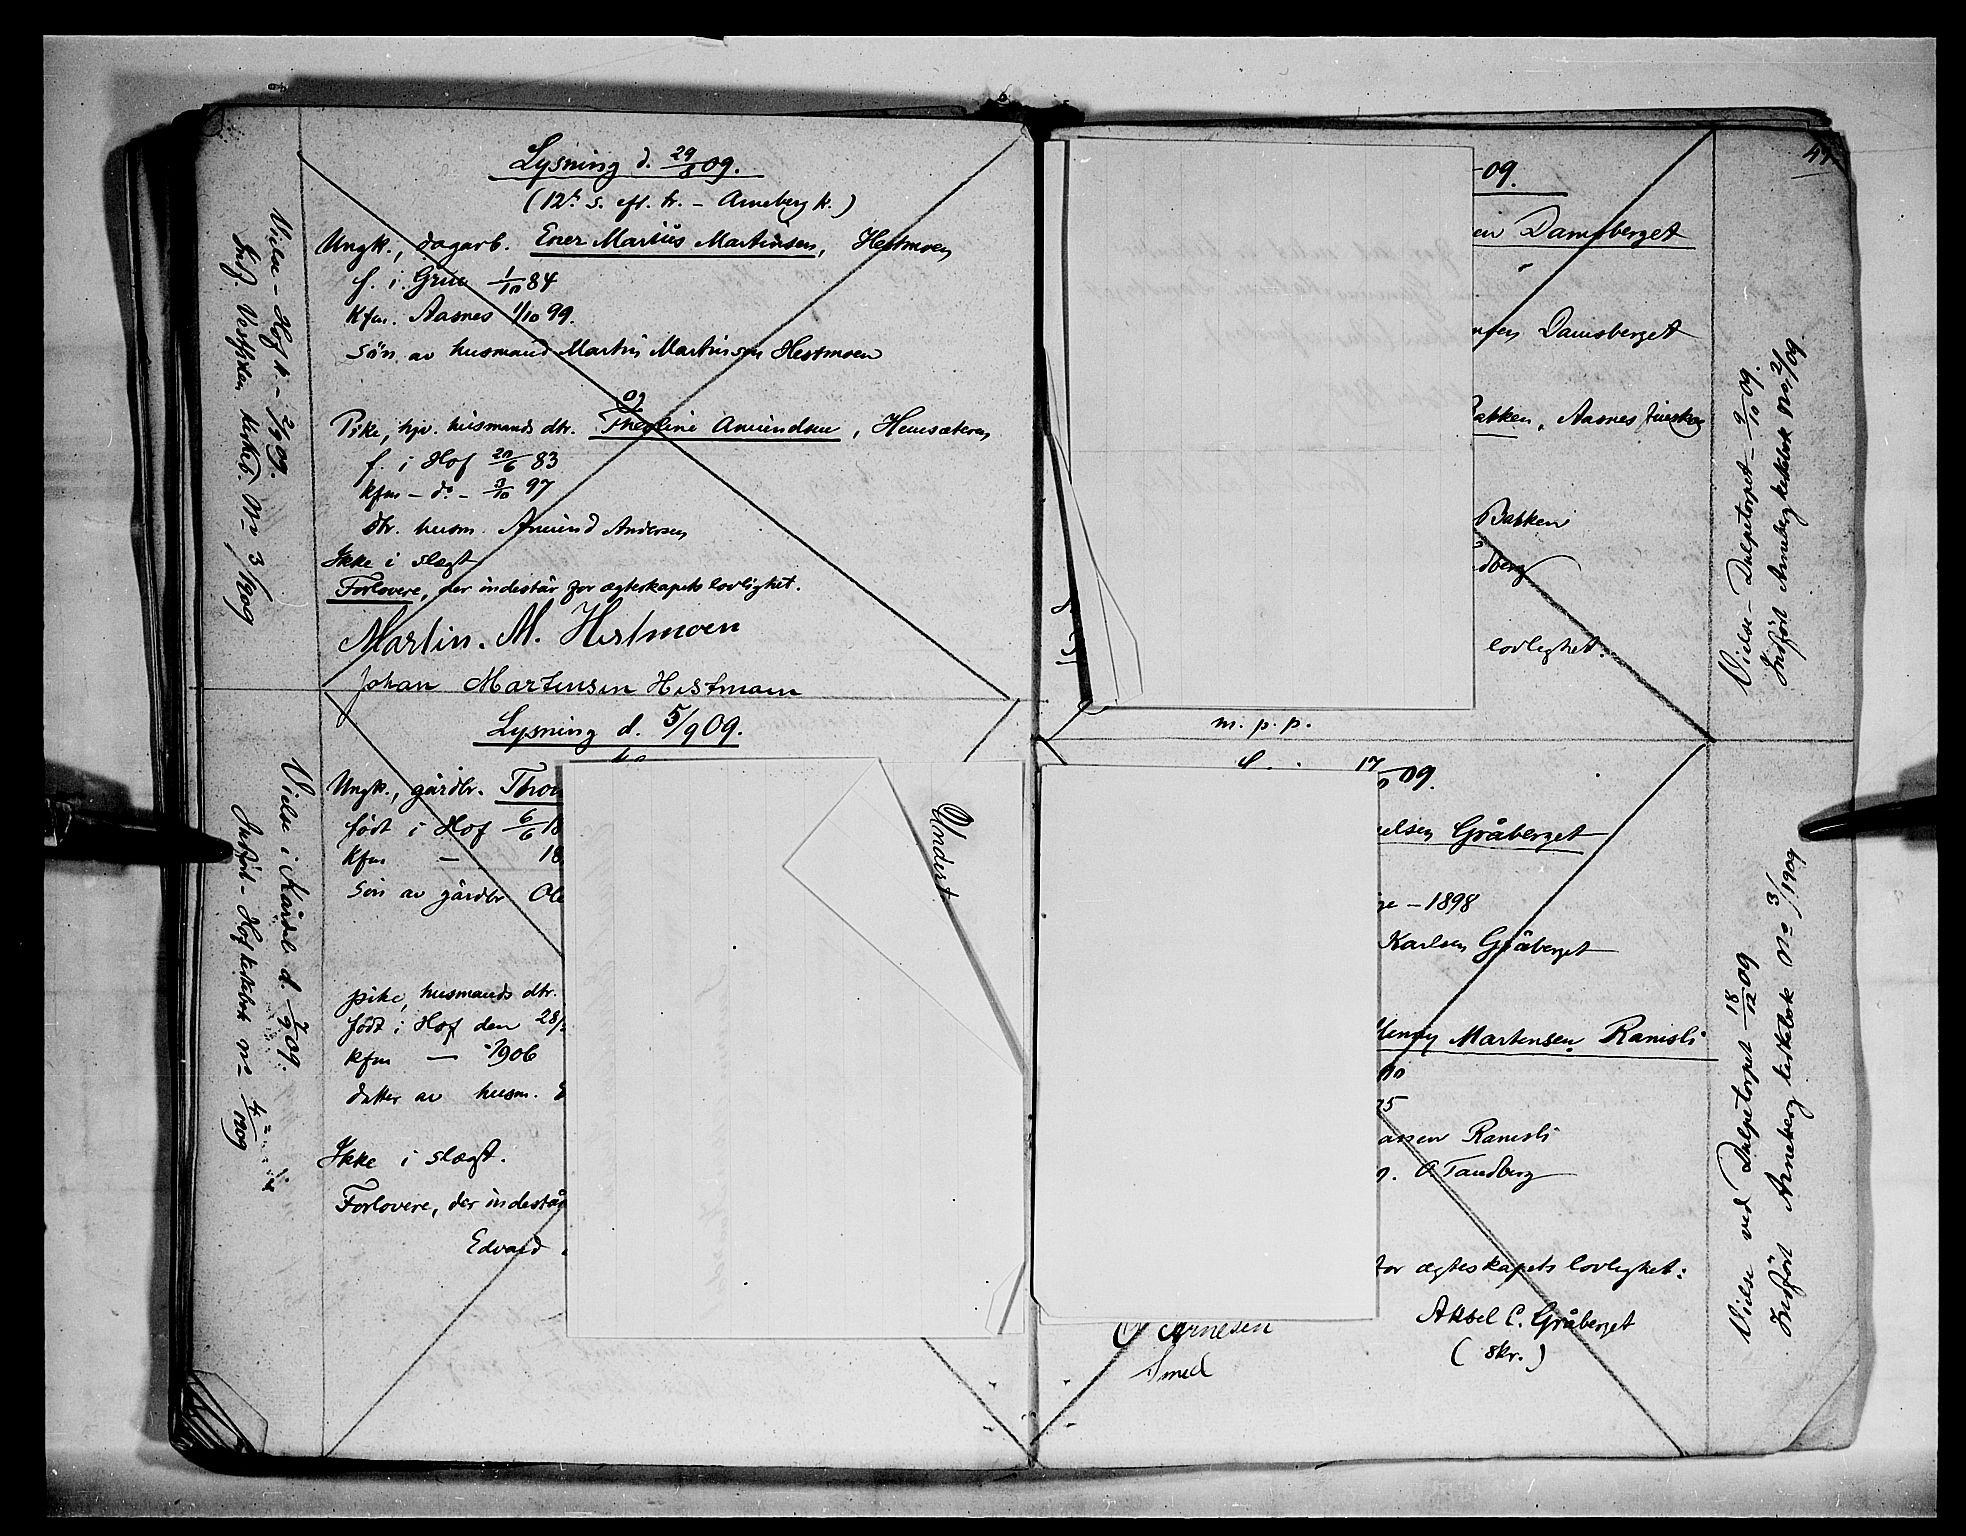 Lysning d. 29/8 09.
(12te s. eft. tr. - Arneberg k.)
Ungk., dagarb. Ener Martius Martinsen, Hestmoen
f. i Grue 1/10 84
kfm. Aasnes 1/10 99.
Sön av husmand Martin Martinsen Hestmoen
og
Pike, hjv. husmands dtr. Theoline Amundsen,
f. i Hof 20/6 83
kfm - do - 3/10 97
dtr. husm. Amund Andersen
Ikke i slægt
Forlovere, der indestår for ægteskapets lovlighet.
Martin. M. Hestmoen
Johan Martinsen Hestmoen
Vielse - Hof k. - 2/9 09.
Indf. Vestsiden kirkeb. No 3/1909
Lysning d. 5/9 09.
Ungk., gårdbr. Thor
født i Hof 6/6 18
kfm - 18
Sön av gårdbr Ole
pike, husmands dtr.
født i Hof den 28/
kfm - 1906
datter av husm. E
Ikke i slægt.
Forlovere, der indestår
Edvard
Vielse i Kårdal d. 7/9 09.
Indført - Hof kirkebok No 4/1909
Undert
47
09.
en Damsberget
nsen Damsberget
Bakken, Aasnes Finskog
Bakken
dberg
lovlighet.
m. p. p.
Vielse - Dulpetorpet - 9/10 09.
Indført Arneberg kirkebok No 2/09
17
09.
elsen Gråberget
ge - 1898
Karlsen Gråberget
Henny Martinsen Ramsli
10
95
ansen Ramsli
g. O. Tandberg
for ægteskapets lovlighet:
Arnesen
Smed
Aksel C. Gråberget
(skr.)
Vielse ved Dulpetorpet 18/12 09
Indført Arneberg kirkebok No 3/1909